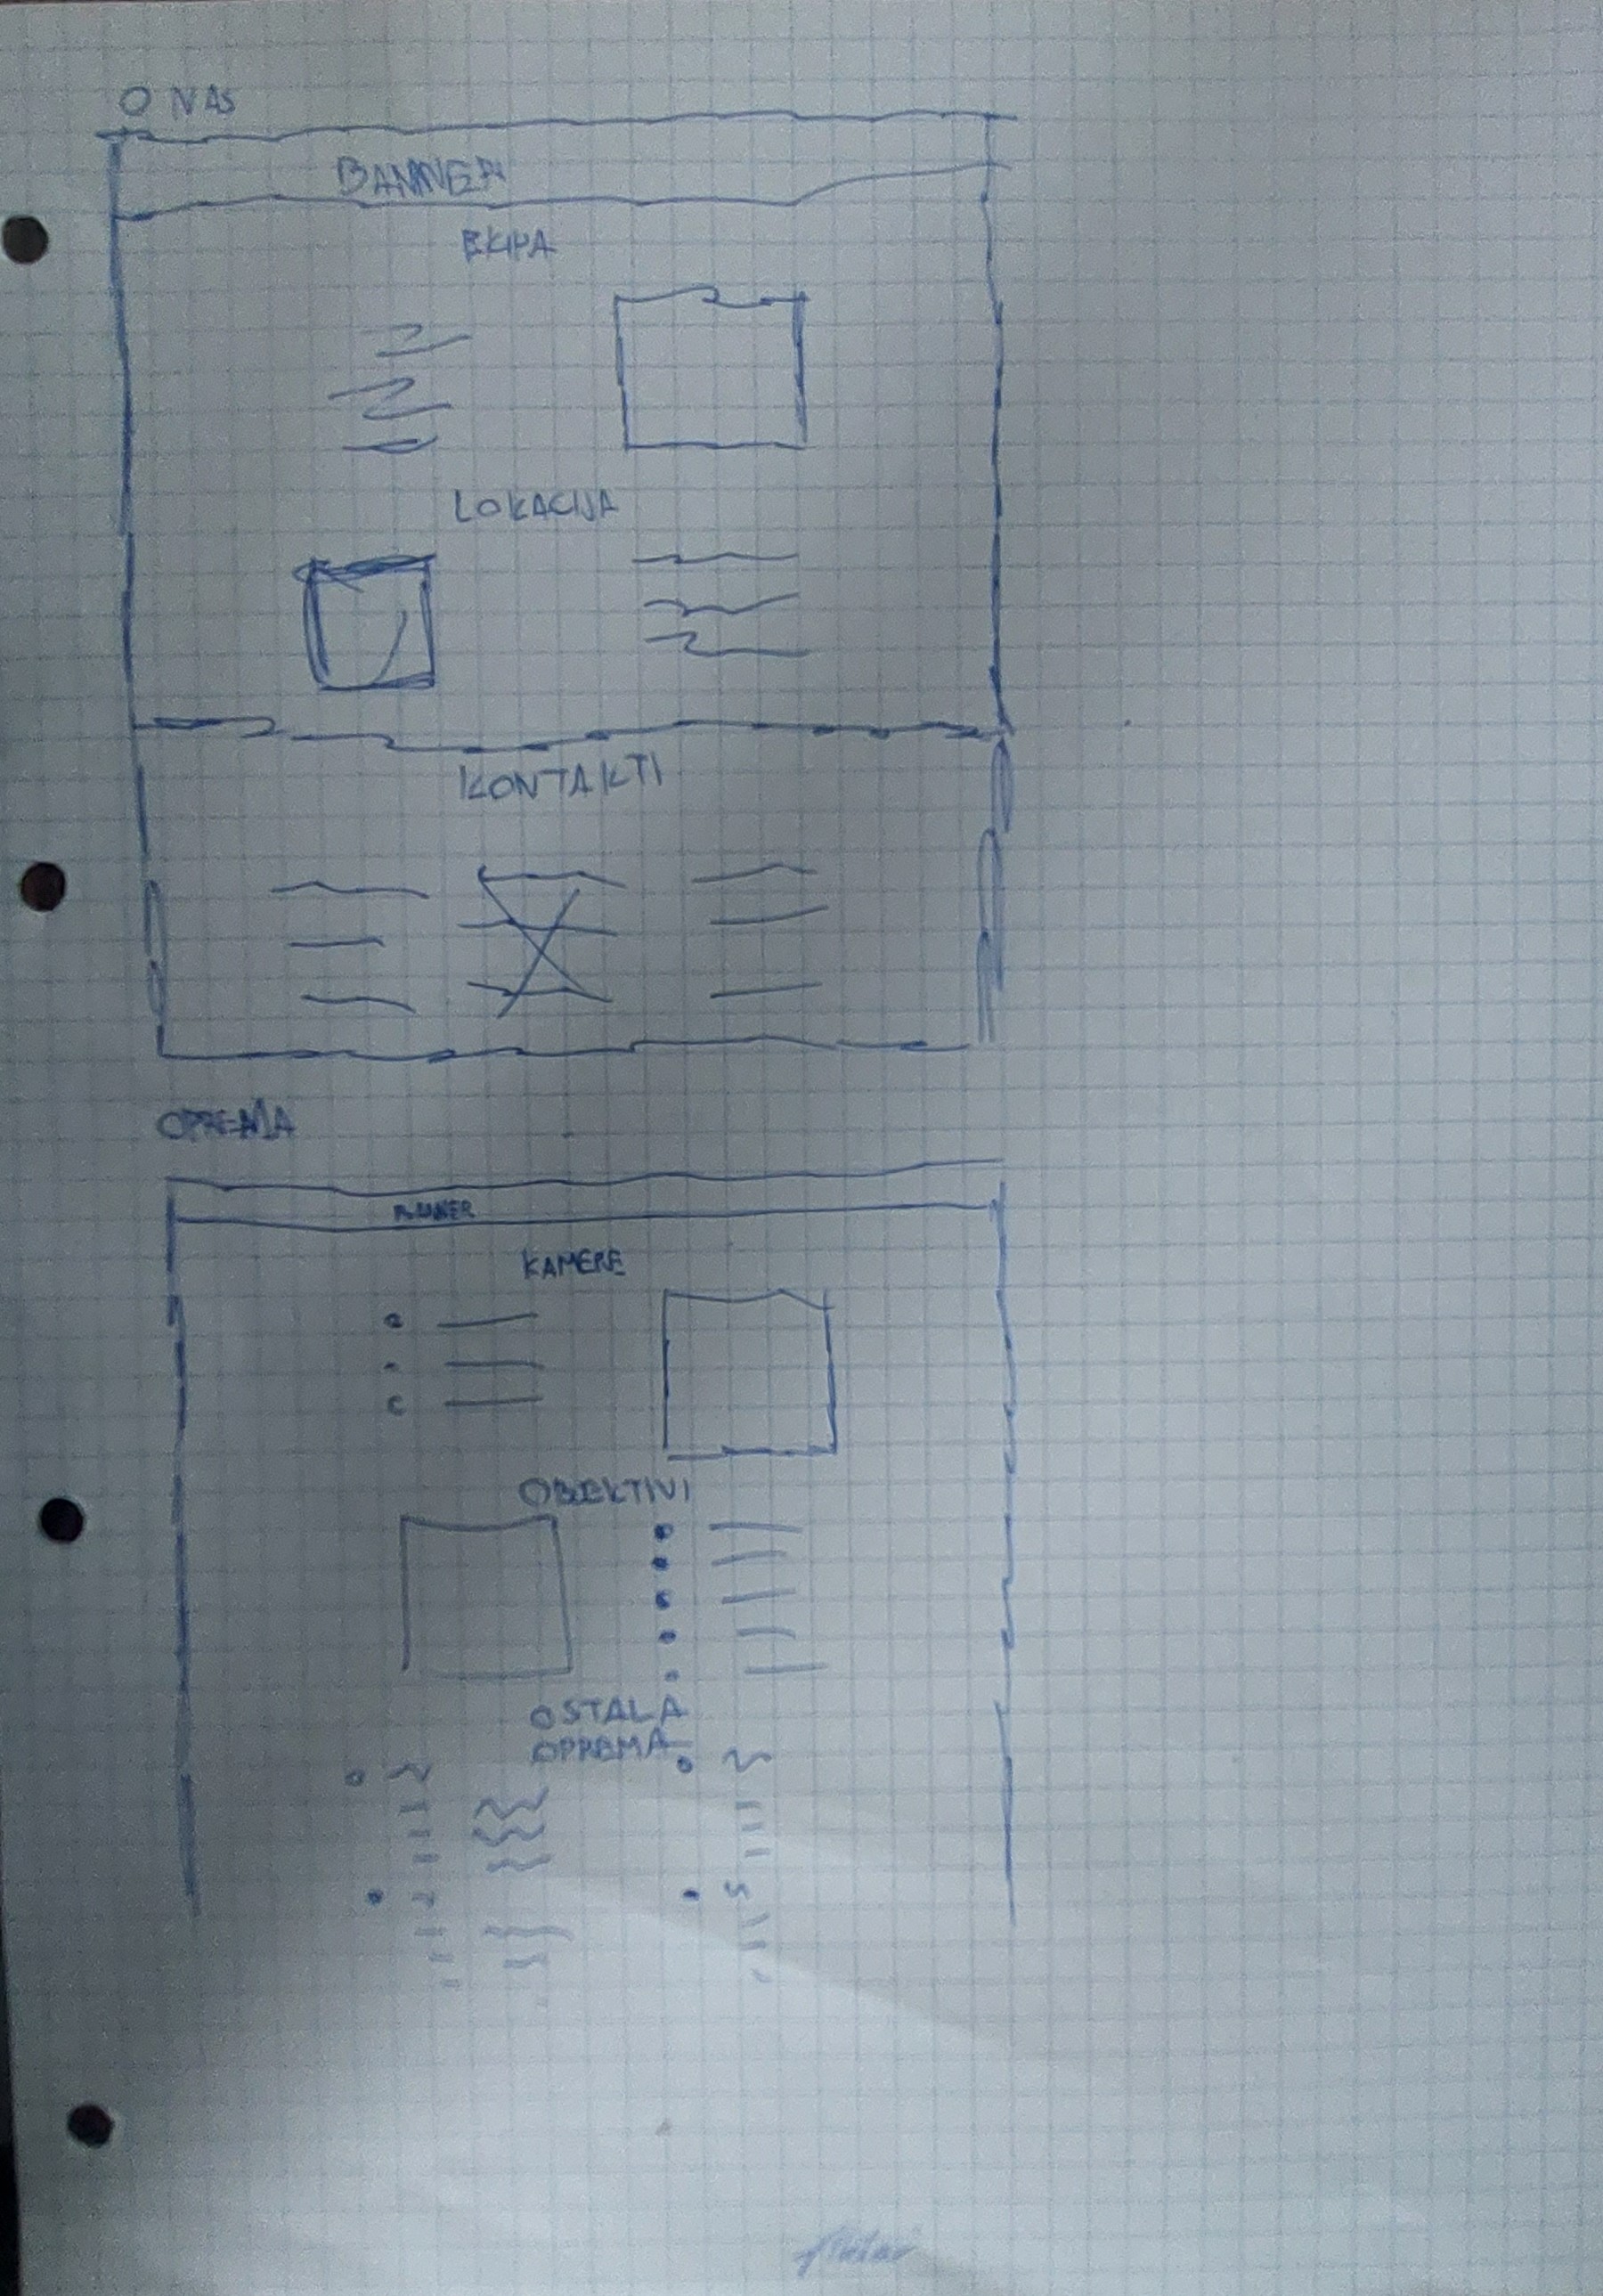 O NAS
BANNER
EKIPA
LOKACIJA
KONTAKTI
OPREMA
BANNER
KAMERE
OBJEKTIVI
OSTALA
OPREMA